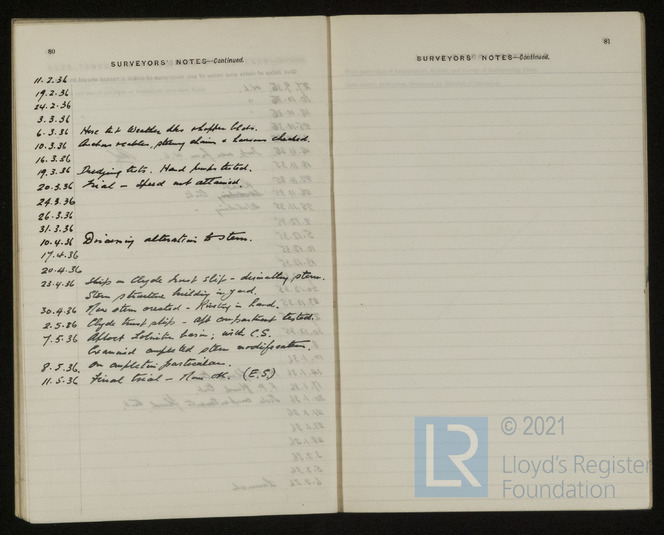 80
SURVEYORS' NOTES—Continued.
11.2.36
19.2.36
24.2.36
3.3.36
6.3.36 Hose test Weather dks & hopper blds.
10.3.36 Anchors & cables, steering chains & hawsers checked.
16.3.36
19.3.36 Dredging tests. Hand pumps tested.
20.3.36 Trial — speed not attained.
24.3.36
26.3.36
31.3.36
10.4.36 Discussing alteration to stern.
17.4.36
20.4.36
23.4.36 Ship on Clyde trust slip - dismantling stern.
Stern structure building in yard.
30.4.36 New stern erected - Riveting in hand.
2.5.36 Clyde trust slip - aft compartment tested.
7.5.36 Afloat Lobnitz basin; with C.S.
Examined completed stern modification.
8.5.36. On completion particulars.
11.5.36 Final trial - Now Ok. (E.S.)
81
SURVEYORS' NOTES—Continued.
LR
© 2021
Lloyd's Register
Foundation